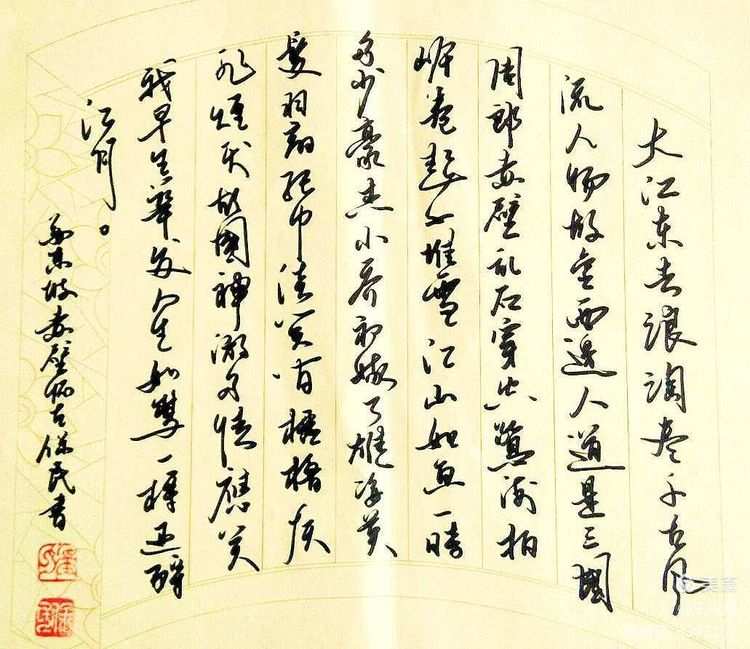 大江东去浪淘尽千古风
流人物故垒西邊人道是三國
周郎赤壁乱石穿空驚涛拍
岸卷起千堆雪江山如画一時
多少豪杰小乔初嫁了雄姿英
發羽扇纶巾谈笑间樯橹灰
飞煙灭故國神游多情應笑
我早生华发人生如梦一樽还酹
江月。
东坡赤壁怀古保民书
美篇